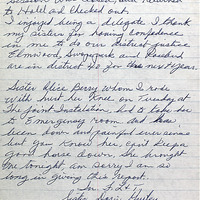 to Hall and checked out.
I enjoyed being a delegate & thank
my sisters for having confidence
in me & do our district justice
Elmwood, Swampark and Rosebud
are in district 43 for the next year.
Sister Alice Berry whom I rode
with hurt her knee on Tuesday at
the Joint Installation, had to take her
to Emergency room and has
been down and painful ever since
but you know her, can't keep a
good horse down. She brought
me tonight. Am Sorry I am so
long in giving this report.
In F L & T